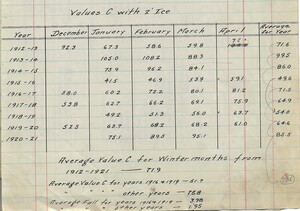 Values C with 2" Ice
Year December January February March April Average for Year
1912-13 92.3 67.3 58.6 59.8 71.6
1913-14 105.0 108.2 88.3 99.5
1914-15 73.9 96.2 84.1 86.0
1915-16 41.5 46.9 53.9 59.1 49.6
1916-17 58.0 60.2 72.2 80.1 81.2
1917-18 53.8 62.7 66.2 72.1 75.9
1918-19 49.2 51.3 56.0 63.7 54.0
1919-20 52.5 63.7 68.2 68.5 61.0 64.6
1920-21 75.1 89.5 95.1 85.5
Average Value C for Winter months from
1912-1921 — 71.9
Average Value C for years 1916 & 1919 — 51.7
" " " " other years — 75.8
Average Fall for years 1916 & 1919 — 3.98
" " " other years — 1.95